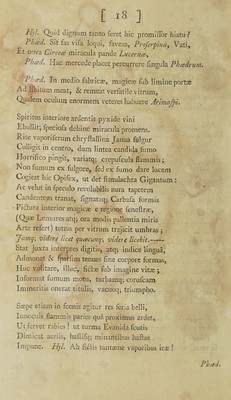 [ 18 ]
Hyl. Quid dignum tanto feret hic promissor hiatu?
Phæd. Sit fas visa loqui, faveas, Proserpina, Vati,
Et nova Circeæ miracula pande Lucernæ,
Phæd. Hac mercede placet percurrere singula Phædrum.
Phæd. In medio fabricæ, magicæ sub limine portæ
Ad libitum meat, & remeat versatile vitrum,
Qualem oculum enormem veteres habuere Arimaspi.
Spiritus interiore ardentis pyxide vini
Ebullit; speciosa dehinc miracula promens.
Rite vaporiferum chrystallina Janua fulgur
Colligit in centro, dum lintea candida fumo
Horrifico pingit, variatq; crepuscula flammis;
Non fumum ex fulgore, sed ex fumo dare lucem
Cogitat hic Opifex, ut det simulachra Gigantum:
Ac velut in speculo revolubilis aura tapetem
Candentem transit, signatq; Carbasa formis
Pictura interior magicæ e regione fenestræ,
(Quæ Lemures atq; ora modis pallentia miris
Arte refert) tutus per vitrum trajicit umbras;
Jamq; videre licet quæcunq; videre licebit.-----
Stat juxta interpres digitis, atq; indice linguâ,
Admonet & sparsim tenues sine corpore formas,
Huc volitare, illuc, fictæ sub imagine vitæ;
Informat fumum motu, turbamq; coruscam
Immeritis onerat titulis, vacuoq; triumpho.
Sæpe etiam in scenis agitur res seria belli,
Innocuis flammis paries quâ proximus ardet,
Ut fervet rabies! ut turma Evanida scutis
Dimicat aeriis, hastisq; minantibus hastas
Impune. Hyl. Ah fictis tantæne vaporibus iræ!
Phæd.